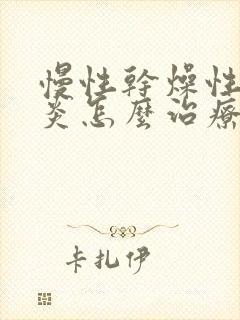 慢性幹燥性
炎怎麼治療
卡扎伊